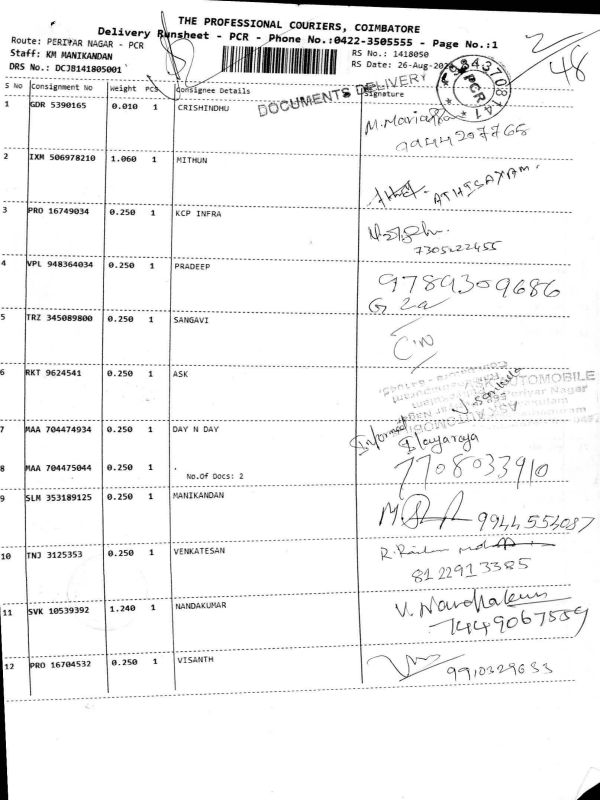 THE PROFESSIONAL COURIERS, COIMBATORE
Delivery Runsheet - PCR - Phone No.:0422-3505555 - Page No.:1
Route: PERIYAR NAGAR - PCR
RS No.: 1418050
2/48
Staff: KM MANIKANDAN
RS Date: 26-Aug-20
DRS No.: DCJB141805001
DOCUMENTS DELIVERY
PCR
S No Consignment No Weight PCS Consignee Details Signature
1 GDR 5390165 0.010 1 CRISHINDHU
9944207768
2 IXM 506978210 1.060 1 MITHUN
ATHISAYAM.
3 PRO 16749034 0.250 1 KCP INFRA
7305222455
4 VPL 948364034 0.250 1 PRADEEP 9789309686
5 TRZ 345089800 0.250 1 SANGAVI
6 RKT 9624541 0.250 1 ASK
ASK AUTOMOBILE
7 MAA 704474934 0.250 1 DAY N DAY
Ilayaraja
8 MAA 704475044 0.250 1 . 7708033910
No.Of Docs: 2
9 SLM 353189125 0.250 1 MANIKANDAN
9944554087
10 TNJ 3125353 0.250 1 VENKATESAN
8122913385
11 SVK 10539392 1.240 1 NANDAKUMAR
7449067559
12 PRO 16704532 0.250 1 VISANTH